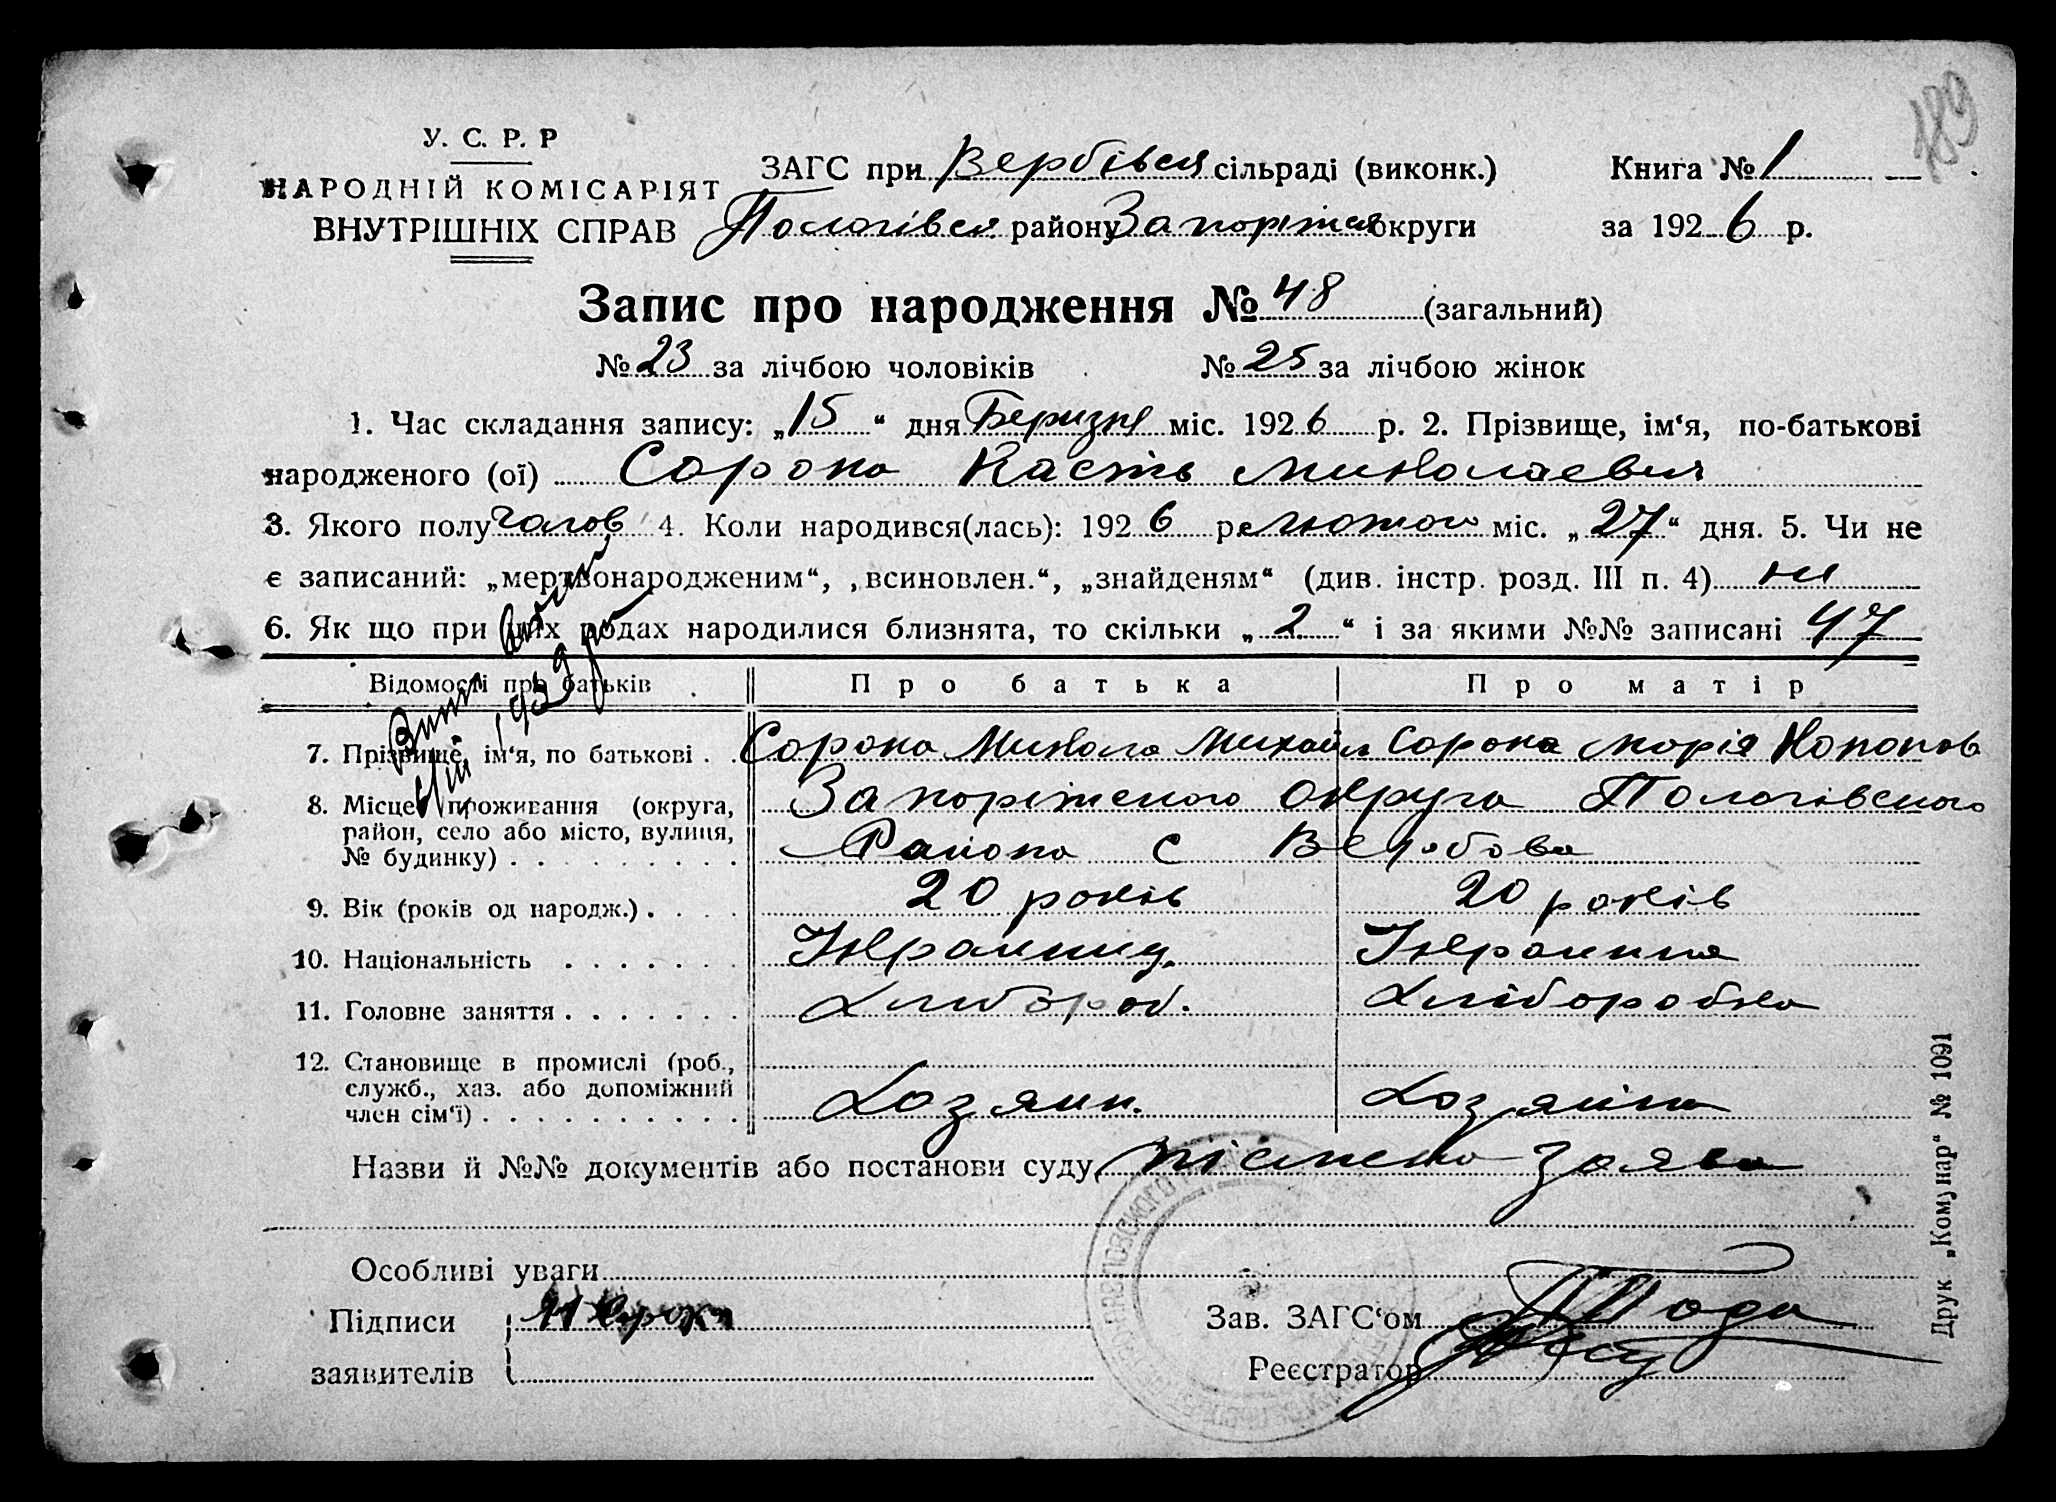 189
У. С. Р. Р
НАРОДНІЙ КОМІСАРІЯТ
ВНУТРІШНІХ СПРАВ
ЗАГС при Вербівськ сільраді (виконк.)
Пологівськ району Запоріжськ округи
Книга № 1
за 1926 р.
Запис про народження № 48 (загальний)
№ 23 за лічбою чоловіків № 25 за лічбою жінок
1. Час складання запису: „15“ дня Березня міс. 1926 р. 2. Прізвище, ім‘я, по-батькові
народженого (ої) Сорока Касть Миколаевич
3. Якого полу чолов 4. Коли народився(лась): 1926 р. лютого міс. „27“ дня. 5. Чи не
є записаний: „мертвонародженим“, „всиновлен.“, „знайденям“ (див. інстр. розд. III п. 4) ні
6. Як що при цих родах народилися близнята, то скільки „2“ і за якими №№ записані 47
Відомості про батьків Про батька Про матір
7. Прізвище, ім‘я, по батькові . . Сорока Микола Михайл Сорока Марія Конопов
8. Місце проживання (округа, район, село або місто, вулиця, № будинку) . . . . . . . . . Запоріжського Округа Пологівського
Района с Вербова
9. Вік (років од народж.) . . . . 20 років 20 років
10. Національність . . . . . . . Украинец. Украинка
11. Головне заняття . . . . . . . Хлибороб. Хліборобка
12. Становище в промислі (роб., служб., хаз. або допоміжний член сім‘ї) . . . . . . . . . . Хозяин. Хозяйка
Назви й №№ документів або постанови суду пісмена заява
Особливі уваги
Підписи
заявителів
М Сорока
Зав. ЗАГС‘ом
Реєстратор
1939
Друк „Комунар“ № 1091